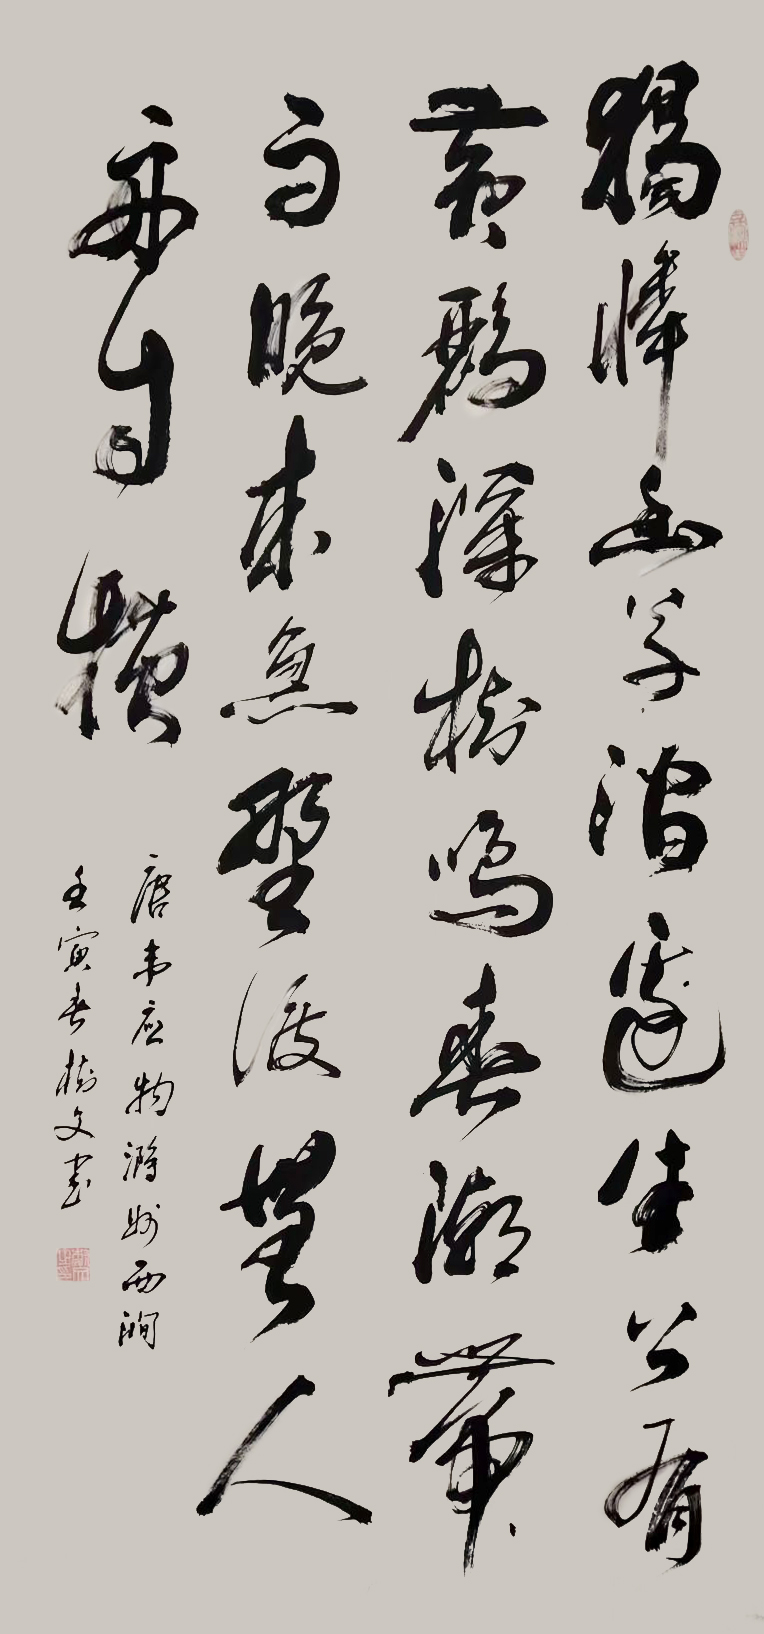 獨憐幽草澗邊生上有
黃鸝深樹鳴春潮帶
雨晚來急野渡無人
舟自橫
唐韦应物滁州西澗
壬寅春樹文書